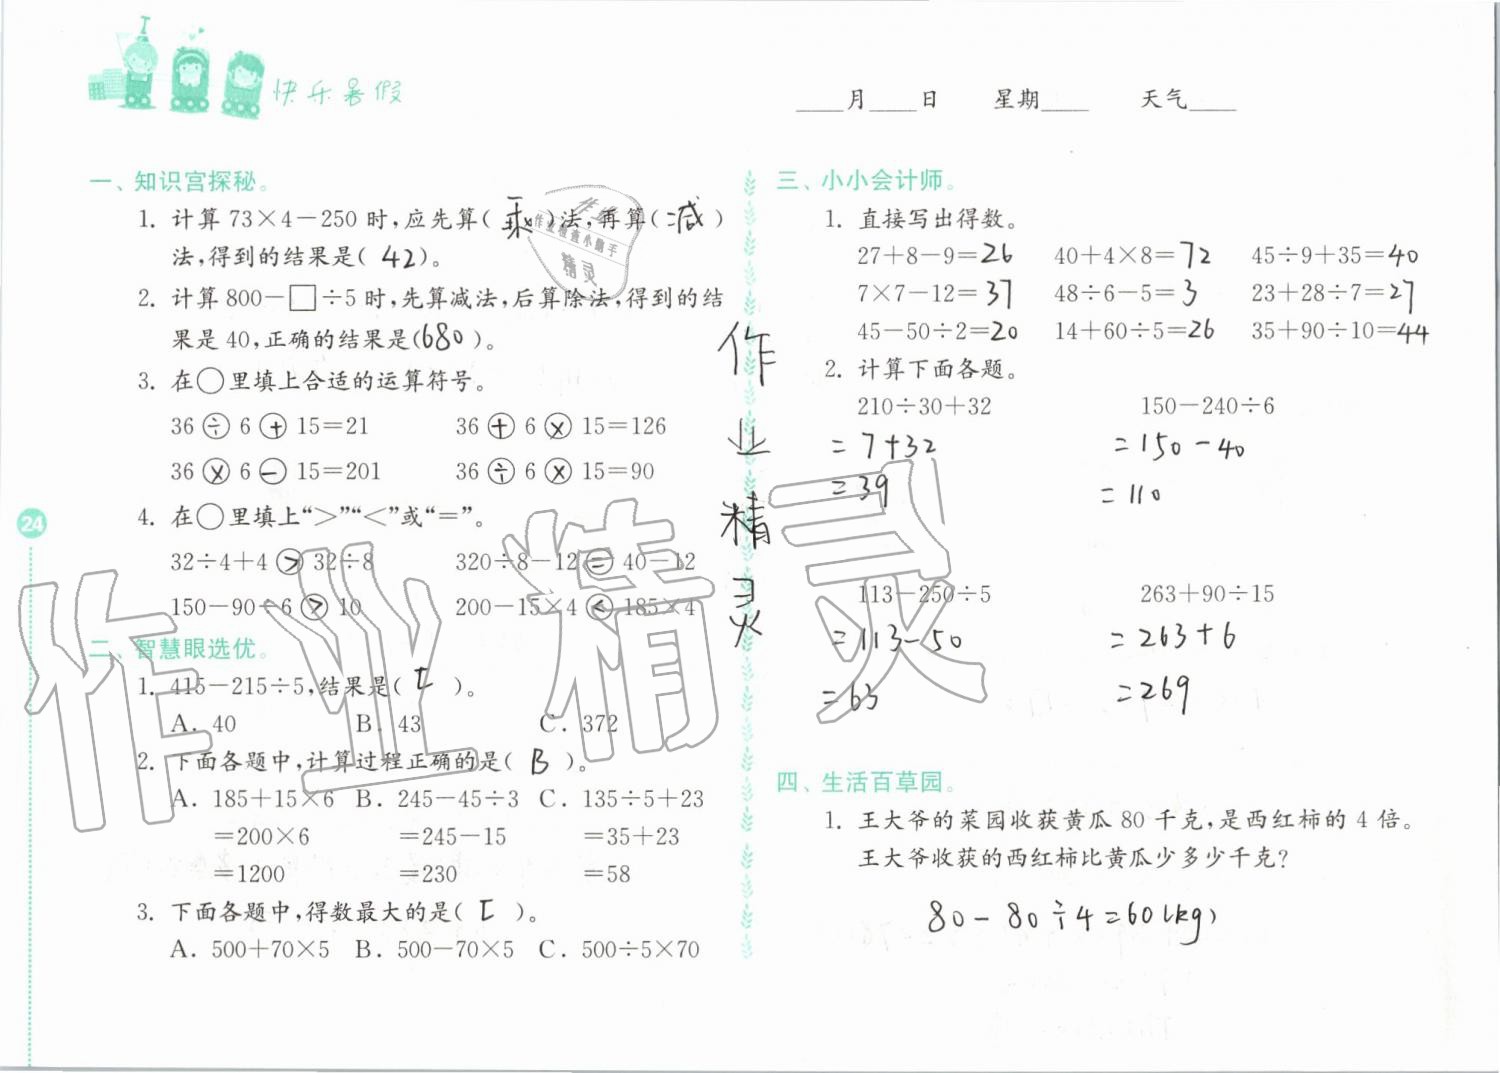 快乐暑假
____月____日 星期____ 天气____
一、知识宫探秘。
1. 计算73×4-250时,应先算(乘)法,再算(减)
法,得到的结果是(42)。
2. 计算800-□÷5时,先算减法,后算除法,得到的结
果是40,正确的结果是(680)。
3. 在○里填上合适的运算符号。
36÷6+15=21 36+6×15=126
36×6-15=201 36÷6×15=90
4. 在○里填上“>”“<”或“=”。
32÷4+4>32÷8 320÷8-12=40-12
150-90÷6>10 200-15×4<185×4
二、智慧眼选优。
1. 415-215÷5,结果是(C)。
A. 40 B. 43 C. 372
2. 下面各题中,计算过程正确的是(B)。
A. 185+15×6 B. 245-45÷3 C. 135÷5+23
=200×6 =245-15 =35+23
=1200 =230 =58
3. 下面各题中,得数最大的是(C)。
A. 500+70×5 B. 500-70×5 C. 500÷5×70
24
作业精灵
作业
作业检查小助手
精灵
作业精灵
三、小小会计师。
1. 直接写出得数。
27+8-9=26 40+4×8=72 45÷9+35=40
7×7-12=37 48÷6-5=3 23+28÷7=27
45-50÷2=20 14+60÷5=26 35+90÷10=44
2. 计算下面各题。
210÷30+32 150-240÷6
=7+32 =150-40
=39 =110
113-250÷5 263+90÷15
=113-50 =263+6
=63 =269
四、生活百草园。
1. 王大爷的菜园收获黄瓜80千克,是西红柿的4倍。
王大爷收获的西红柿比黄瓜少多少千克?
80-80÷4=60(kg)